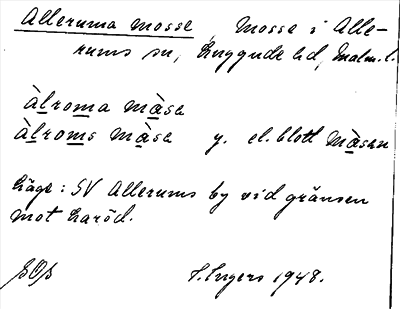 Allerums mosse, Mosse i Alle-
rums sn, Luggude hd, Malm. l.
àlroma màse
àlroms màse y. el. blott màsen
Läge: SV Allerums by vid gränsen
mot Laröd.
1948.